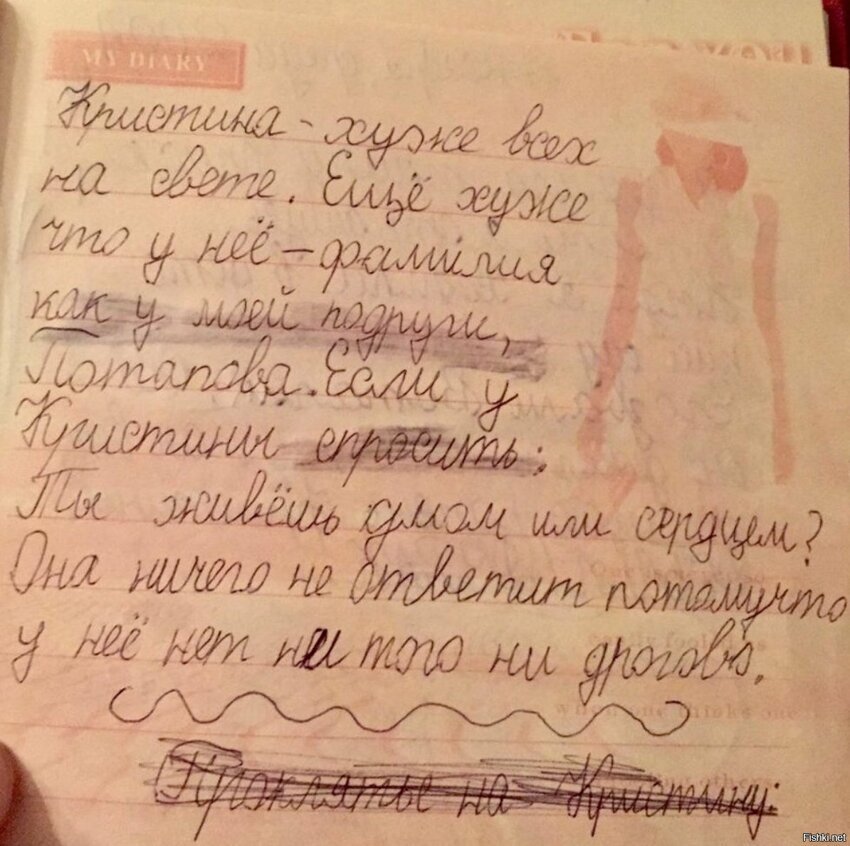 MY DIARY
Кристина - хуже всех
на свете. Ещё хуже
что у неё - фамилия
как у моей подруги,
Потапова. Если у
Кристины спросить:
Ты живёшь умом или сердцем?
Она ничего не ответит потомучто
у неё нет ни того ни дрогова.
Проклятье на Кристину:
Fishki.net